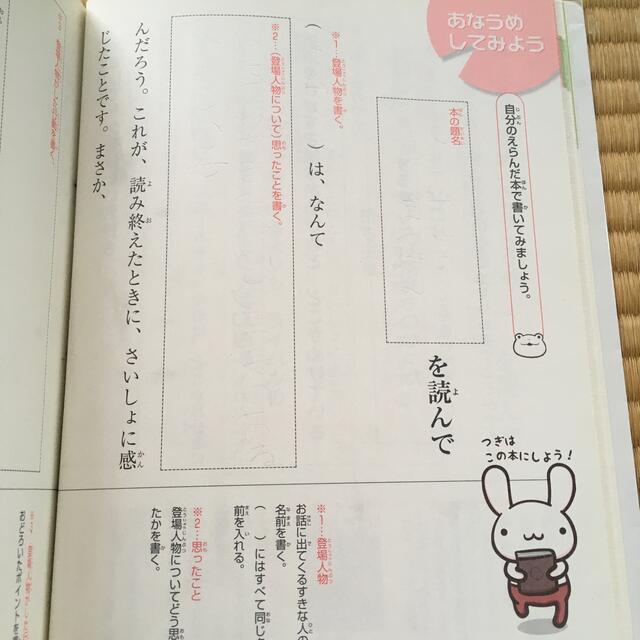 あなうめ
してみよう
自分のえらんだ本で書いてみましょう。
本の題名
を読んで
※1…(登場人物を書く。
(　　　)は、なんて
※2…(登場人物について)思ったことを書く。
んだろう。これが、読み終えたときに、さいしょに感
じたことです。まさか、
つぎは
この本にしよう!
※1…登場人物
お話に出てくるすきな人の
名前を書く。
(　)にはすべて同じ
前を入れる。
※2…思ったこと
登場人物についてどう思
たかを書く。
おどろいたポイントを